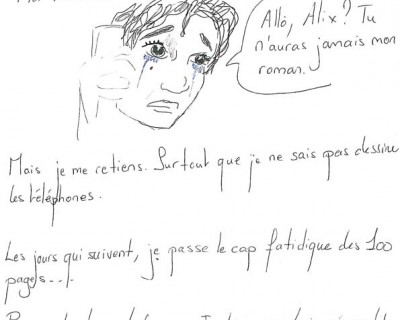 Allô, Alix? Tu
n'auras jamais mon
roman.
Mais je me retiens. Surtout que je ne sais pas dessiner
les téléphones.
Les jours qui suivent, je passe le cap fatidique des 100
pages...